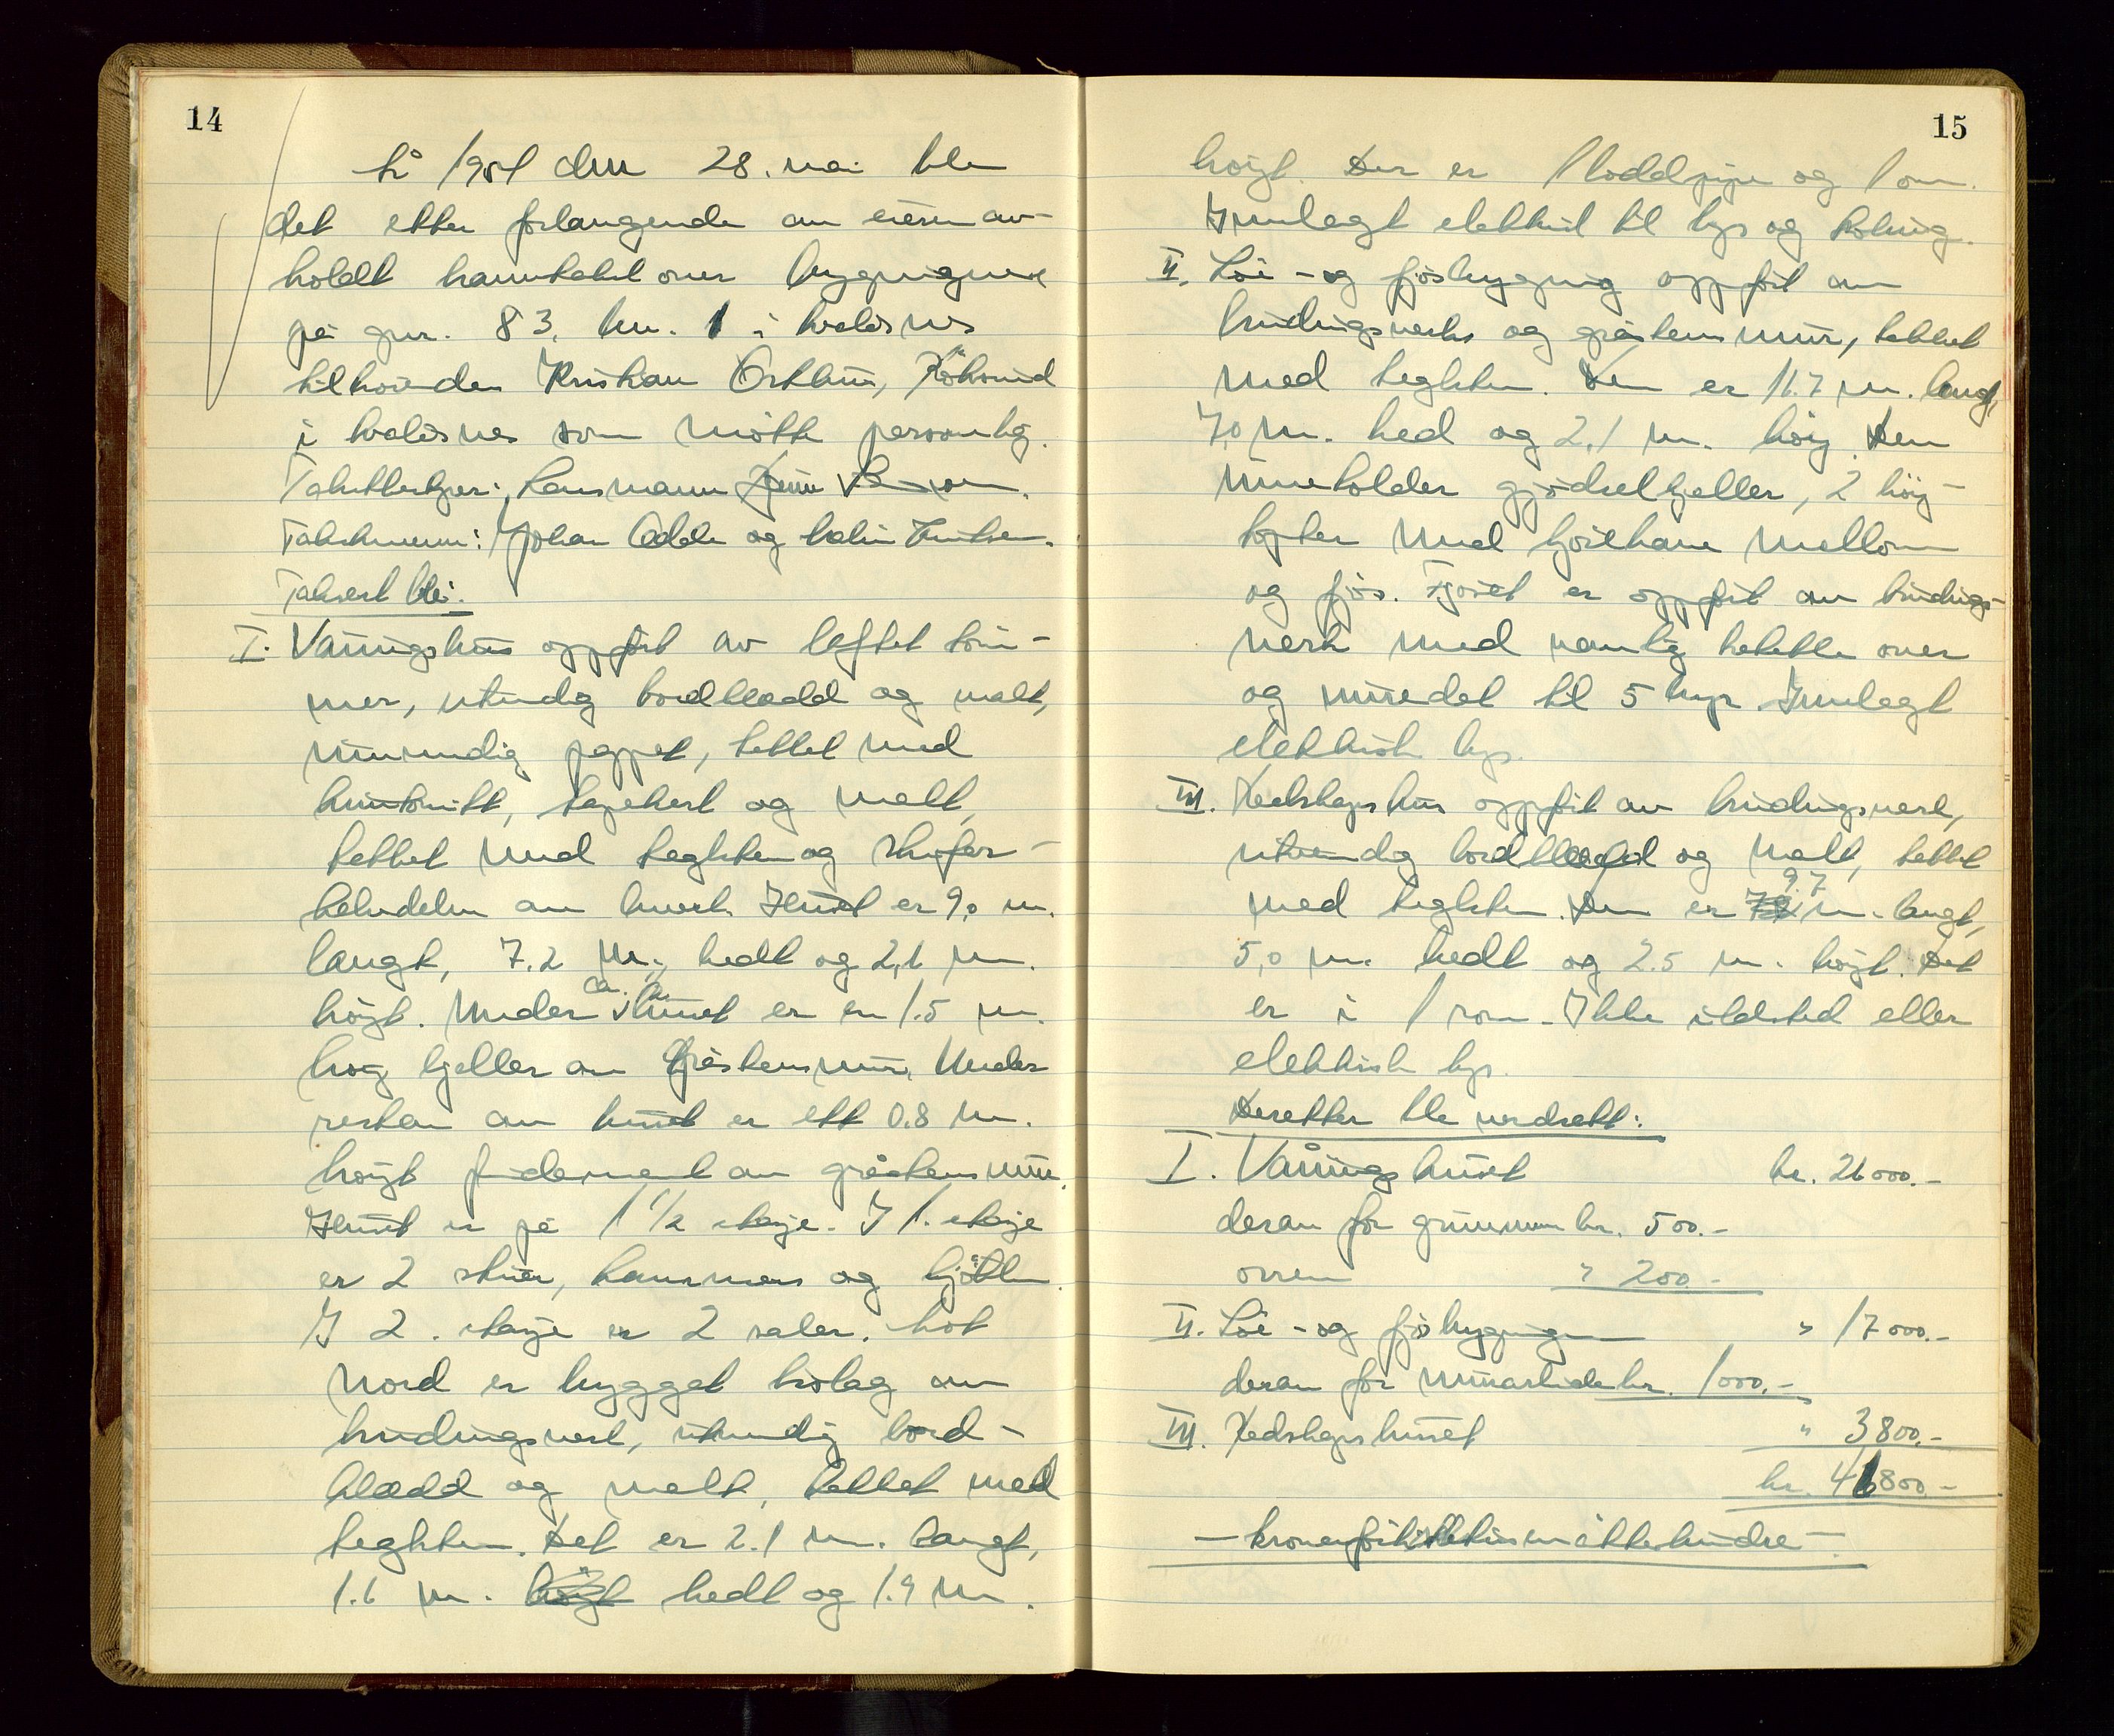 14
År 1951 den 28. mai ble
det etter forlangende av eieren av-
holdt branntakst over bygningene
på gnr. 83, bnr. 1 i Kvalsnes
tilhørende Kristian
i Kvalsnes som møtte personlig.
Takstbestyrer: Lensmann
Takstmenn: Johan og
Taksert ble:
I. Våningshus oppført av laftet töm-
mer, utvendig bordkledd og malt,
innvendig pappet, tekket med
huntonitt, tapetsert og malt,
tekket med teglsten og skifer-
halvdelen av hvert. Huset er 9,0 m.
langt, 7.2 m. bredt og 2,1 m.
höyt. Under ca. ½ huset er en 1.5 m.
höy kjeller av gråstensmur. Under
resten av huset er ett 0.8 m.
höyt fundament av gråstensmur.
Huset er på 1 1/2 etasje. I 1. etasje
er 2 stuer, kammers og kjökken.
I 2. etasje er 2 saler. Mot
nord er bygget bislag av
bindingsverk, utvendig bord-
kledd og malt, tekket med
teglsten. Det er 2.1 m. langt,
1.6 m. höyt bredt og 1.9 m.
15
höyt. Der er 1 loddpipe og 1 ovn.
Innlagt elektrisk til lys og koking.
II. Löe- og fjösbygning oppfört av
bindingsverk og gråstensmur, tekket
med teglsten. Den er 11.7 m. lang,
7,0 m. bred og 2.1 m. höy. Den
inneholder gjödselkjeller, 2 höy-
med kjörebane mellom
og fjös. Fjöset er oppfört av bindings-
verk med vanlig over
og innredet til 5 kyr. Innlagt
elektrisk lys.
III. Redskapshus oppfört av bindingsverk,
utvendig bordkledd og malt, tekket
med teglsten. Den er 9.7 m. langt,
5,0 m. bredt og 2.5 m. höyt. Det
er i 1 rom. Ikke ildsted eller
elektrisk lys.
Deretter ble verdsatt:
I. Våningshuset kr. 26000.-
derav for grunnmur kr. 500.-
ovnen " 200.-
II. Löe- og fjösbygningen " 17000.-
derav for murarbeide kr. 1000.-
III. Redskapshuset " 3800.-
kr. 46800.-